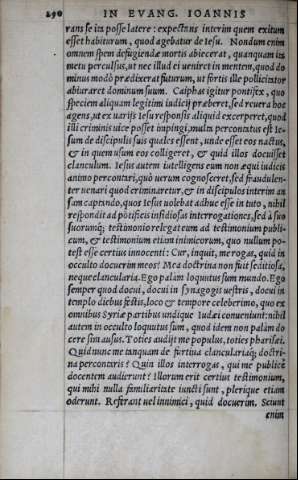 290 IN EVANG. IOANNIS
rans se ita posse latere: expectans interim quem exitum
esset habitura, quod agebatur de Iesu. Nondum enim
omnem spem defugiendæ mortis abiecerat, quanquam ita
metu perculsus, ut nec illud ei ueniret in mentem, quod do
minus modò prædixerat futurum, ut fortis ille pollicitator
abiuraret dominum suum. Caiphas igitur pontifex, quo
speciem aliquam legitimi iudicij præberet, sed reuera hoc
agens, ut ex uarijs Iesu responsis aliquid excerperet, quod
illi criminis uice posset impingi, multa percontatus est Ie-
sum de discipulis suis quales essent, unde esset eos nactus,
& in quem usum eos colligeret, & quid illos docuisset
clanculum. Iesus autem intelligens eum non æqui iudicis
animo percontari, quò uerum cognosceret, sed fraudulen-
ter uenari quod criminaretur, & in discipulos interim an
sam captando, quos Iesus uolebat adhuc esse in tuto, nihil
respondit ad pōtificis insidiosas interrogationes, sed à suo
suorumq; testimonio relegat eum ad testimonium publi-
cum, & testimonium etiam inimicorum, quo nullum po-
test esse certius innocenti: Cur, inquit, me rogas, quid in
occulto docuerim meos? Mea doctrina non fuit seditiosa,
neque clancularia. Ego palam loquutus sum mundo. Ego
semper quod docui, docui in synagogis uestris, docui in
templo diebus festis, loco & tempore celeberimo, quo ex
omnibus Syriæ partibus undique Iudæi conueniunt: nihil
autem in occulto loquutus sum, quod idem non palàm do
cere sim ausus. Toties audijt me populus, toties pharisæi.
Quid nunc me tanquam de furtiua clanculariaq; doctri-
na percontaris? Quin illos interrogas, qui me publicè
docentem audierunt? Illorum erit certius testimonium,
qui mihi nulla familiaritate iuncti sunt, plerique etiam
oderunt. Referant uel inimici, quid docuerim. Sciunt
enim